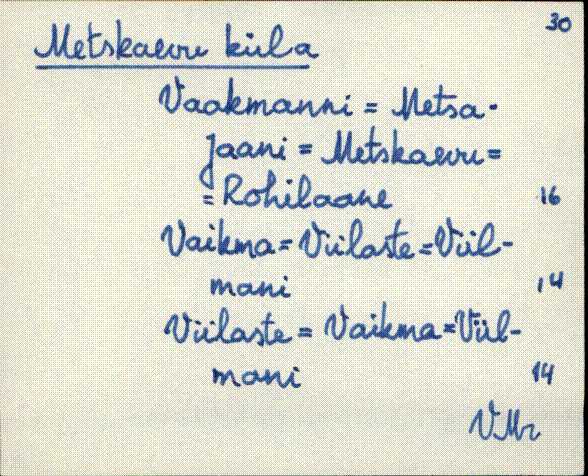 30
Metskaevu küla
Vaakmanni = Metsa-
Jaani = Metskaevu =
= Rohilaane 16
Vaikma = Viilaste = Viil-
mani 14
Viilaste = Vaikma = Viil-
mani 14
VMr